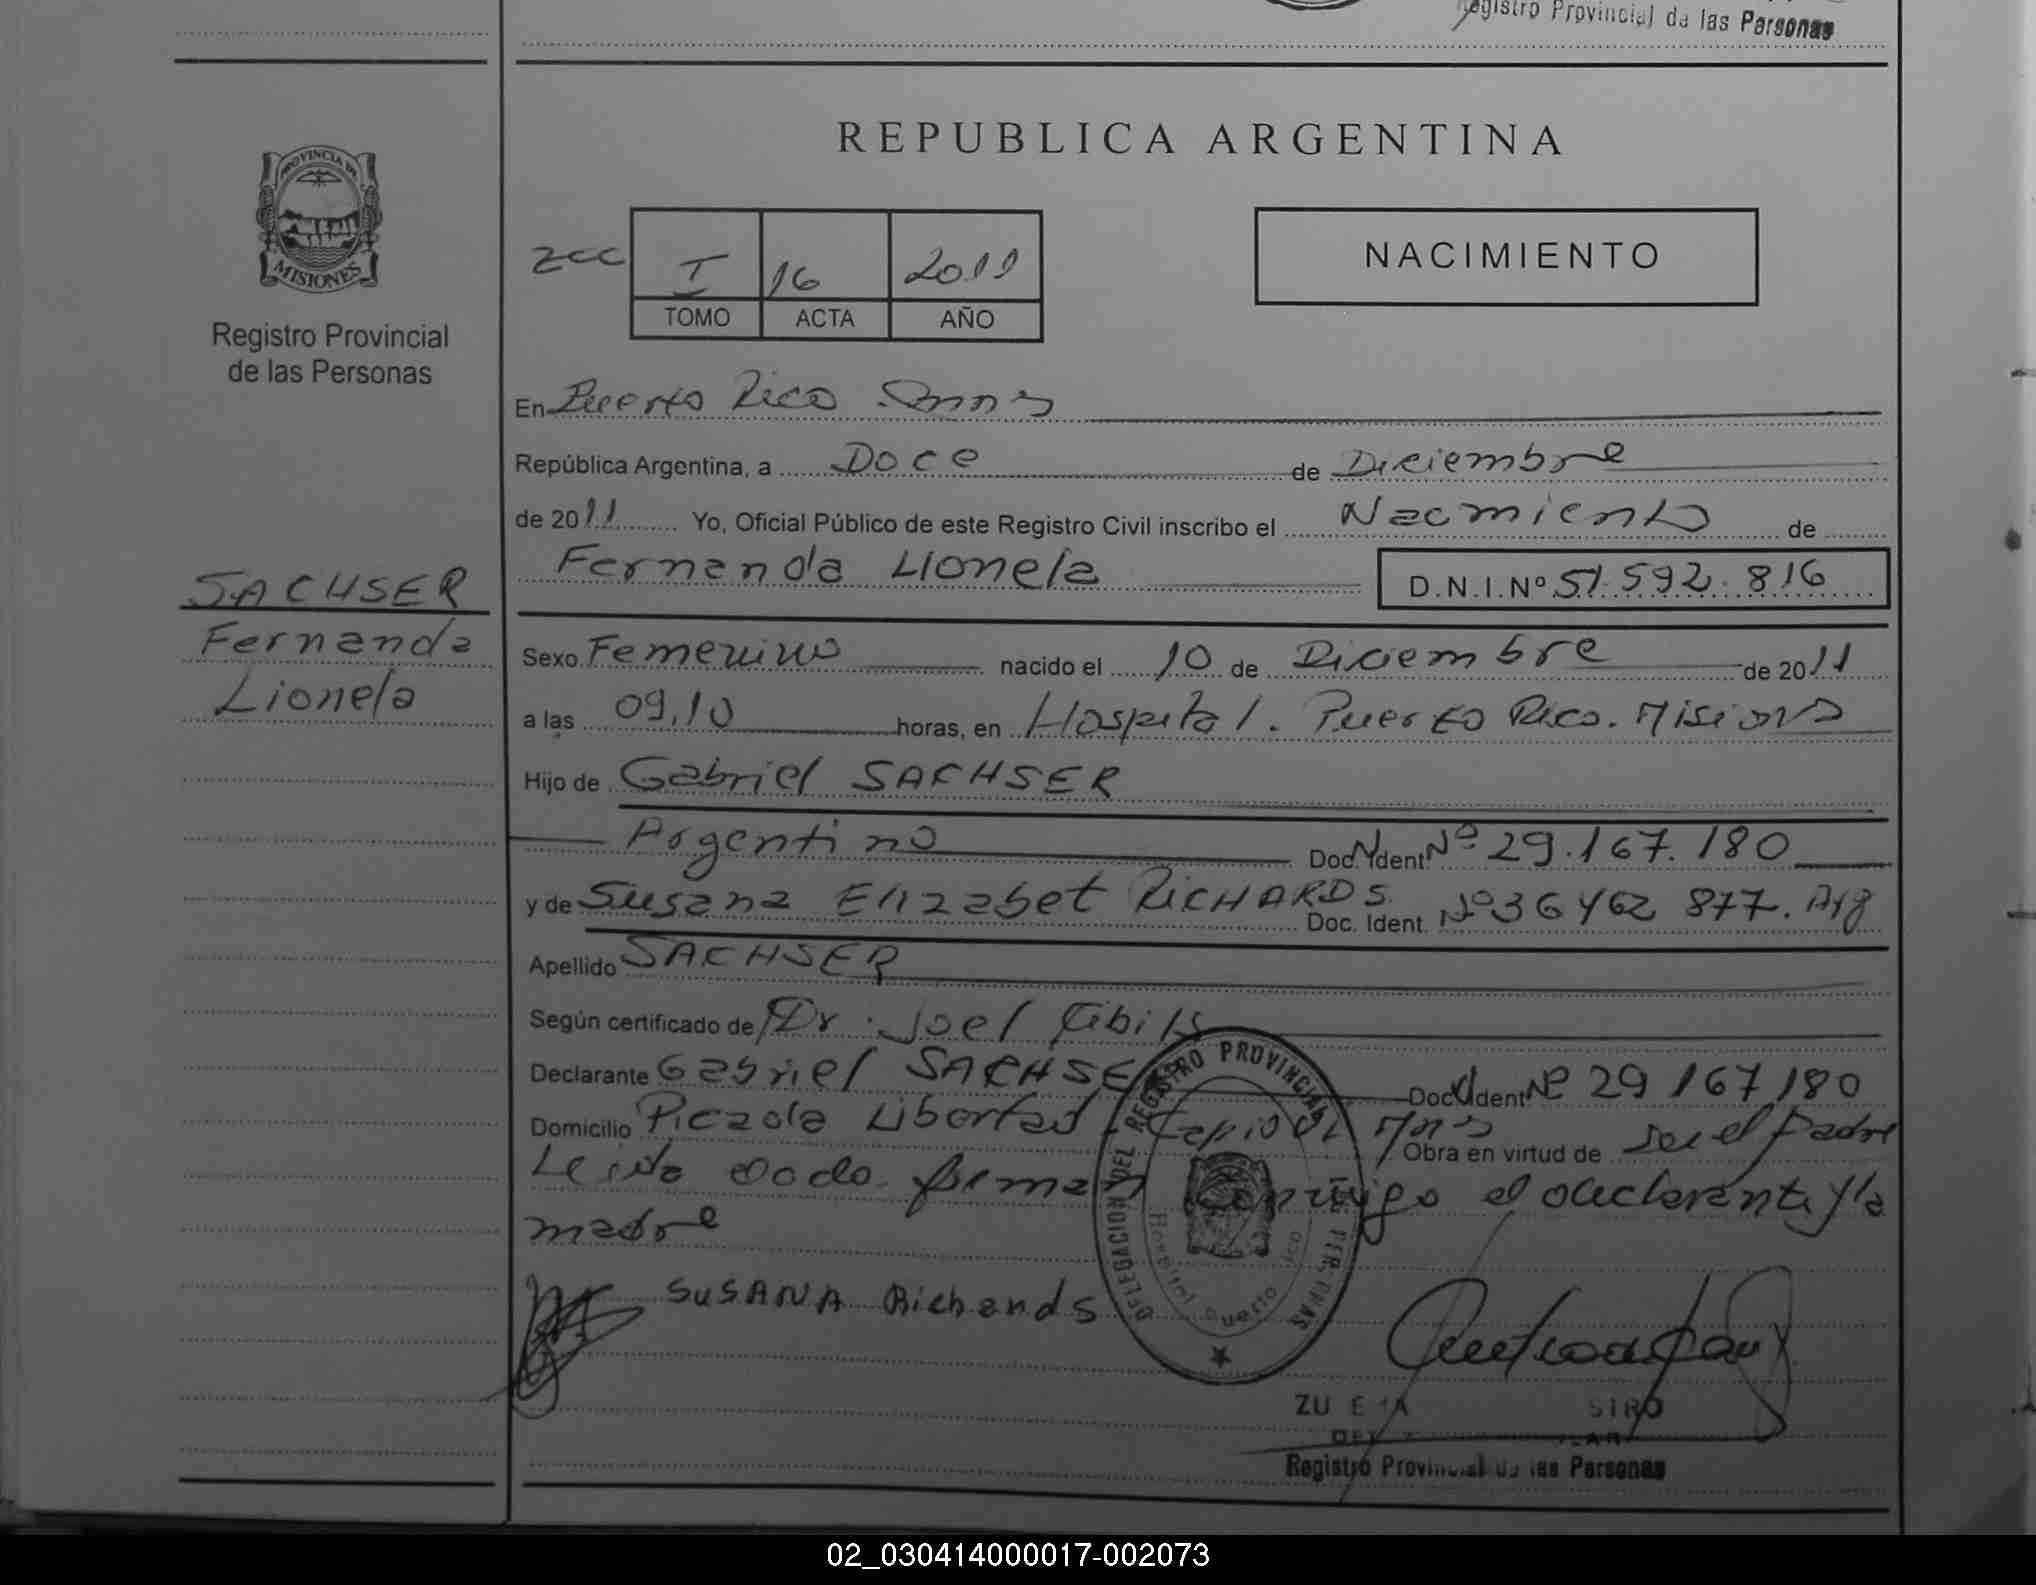 Registro Provincial de las Personas
PROVINCIA DE
MISIONES
Registro Provincial
de las Personas
SACHSER
Fernanda
Lionela
REPUBLICA ARGENTINA
I 16 2011
TOMO ACTA AÑO
NACIMIENTO
En Puerto Rico
República Argentina, a Doce de Diciembre
de 2011 Yo, Oficial Público de este Registro Civil inscribo el Nacimiento de
Fernanda Lionela D.N.I.Nº 51.592.816
Sexo Femenino nacido el 10 de Diciembre de 2011
a las 09,10 horas, en Hospital. Puerto Rico. Misiones
Hijo de Gabriel SACHSER
Argentino Doc. Ident. Nº 29.167.180
y de Susana Elizabet RICHARDS. Doc. Ident. Nº 36 462 877. Arg
Apellido SACHSER
Según certificado de Dr. Joel
Declarante Gabriel SACHSER Doc. Ident Nº 29 167 180
Domicilio Picada Libertad Capiovi Mns
Obra en virtud de ser el padre
Leida firman conmigo el declarante y la
madre
SUSANA Richards
DELEGACION DEL REGISTRO PROVINCIAL DE LAS PERSONAS
Hospital Puerto Rico
Registro Provincial de las Personas
02_030414000017-002073